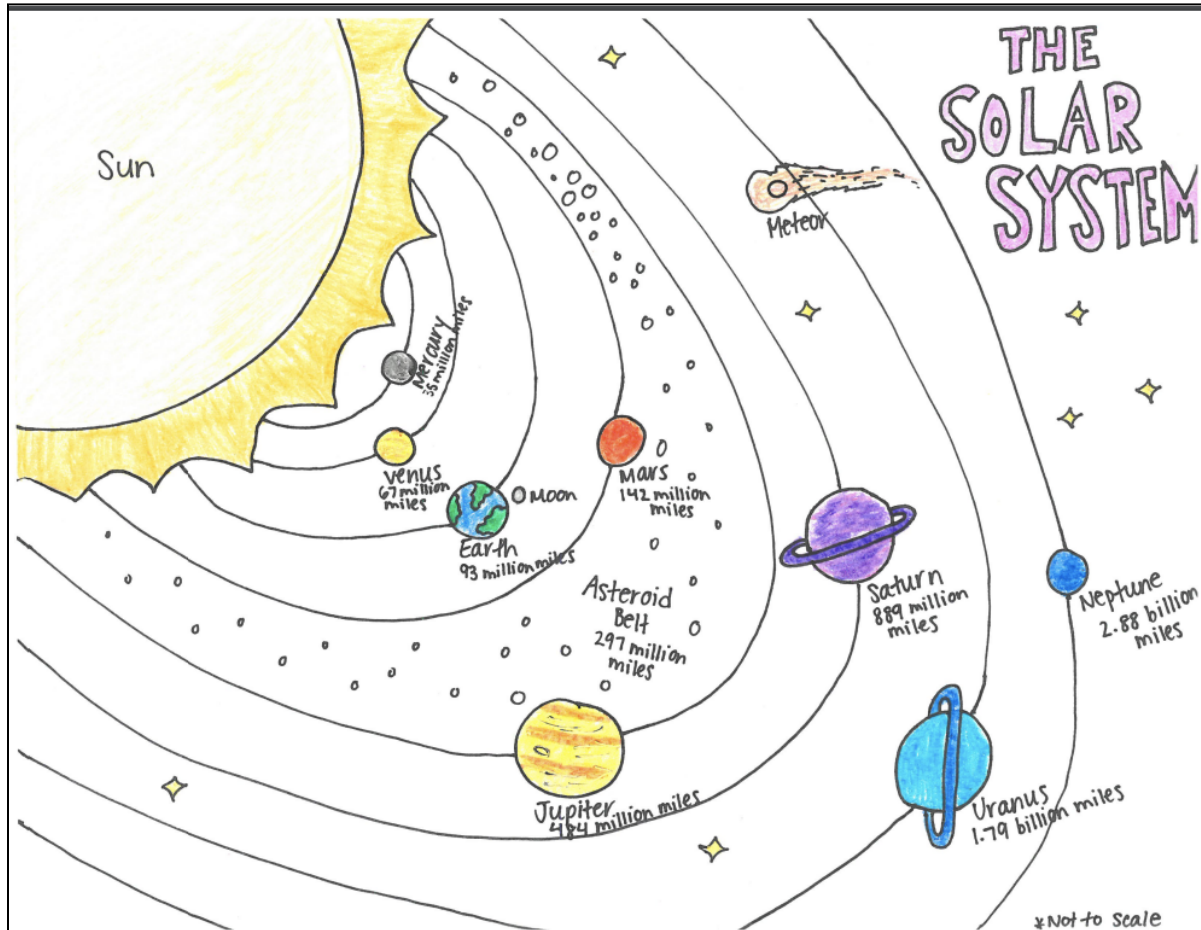 THE
SOLAR
SYSTEM
Sun
Meteor
Mercury
35 million miles
Venus
67 million
miles
Moon
Earth
93 million miles
Mars
142 million
miles
Asteroid
Belt
297 million
miles
Jupiter
484 million miles
Saturn
889 million
miles
Uranus
1.79 billion miles
Neptune
2.88 billion
miles
*Not to scale